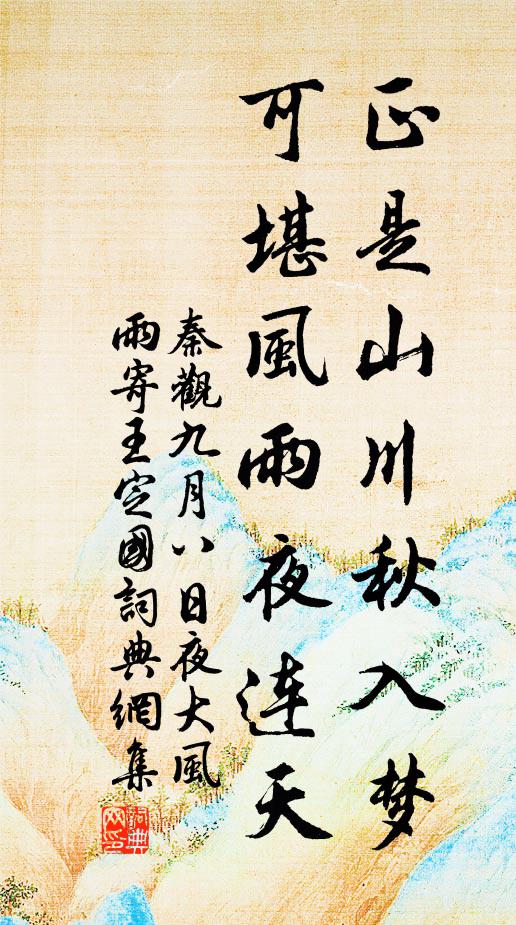 正是山川秋入梦
可堪風雨夜連天
秦觀九月八日夜大風
雨寄王定國詞典網集
詞典
網印